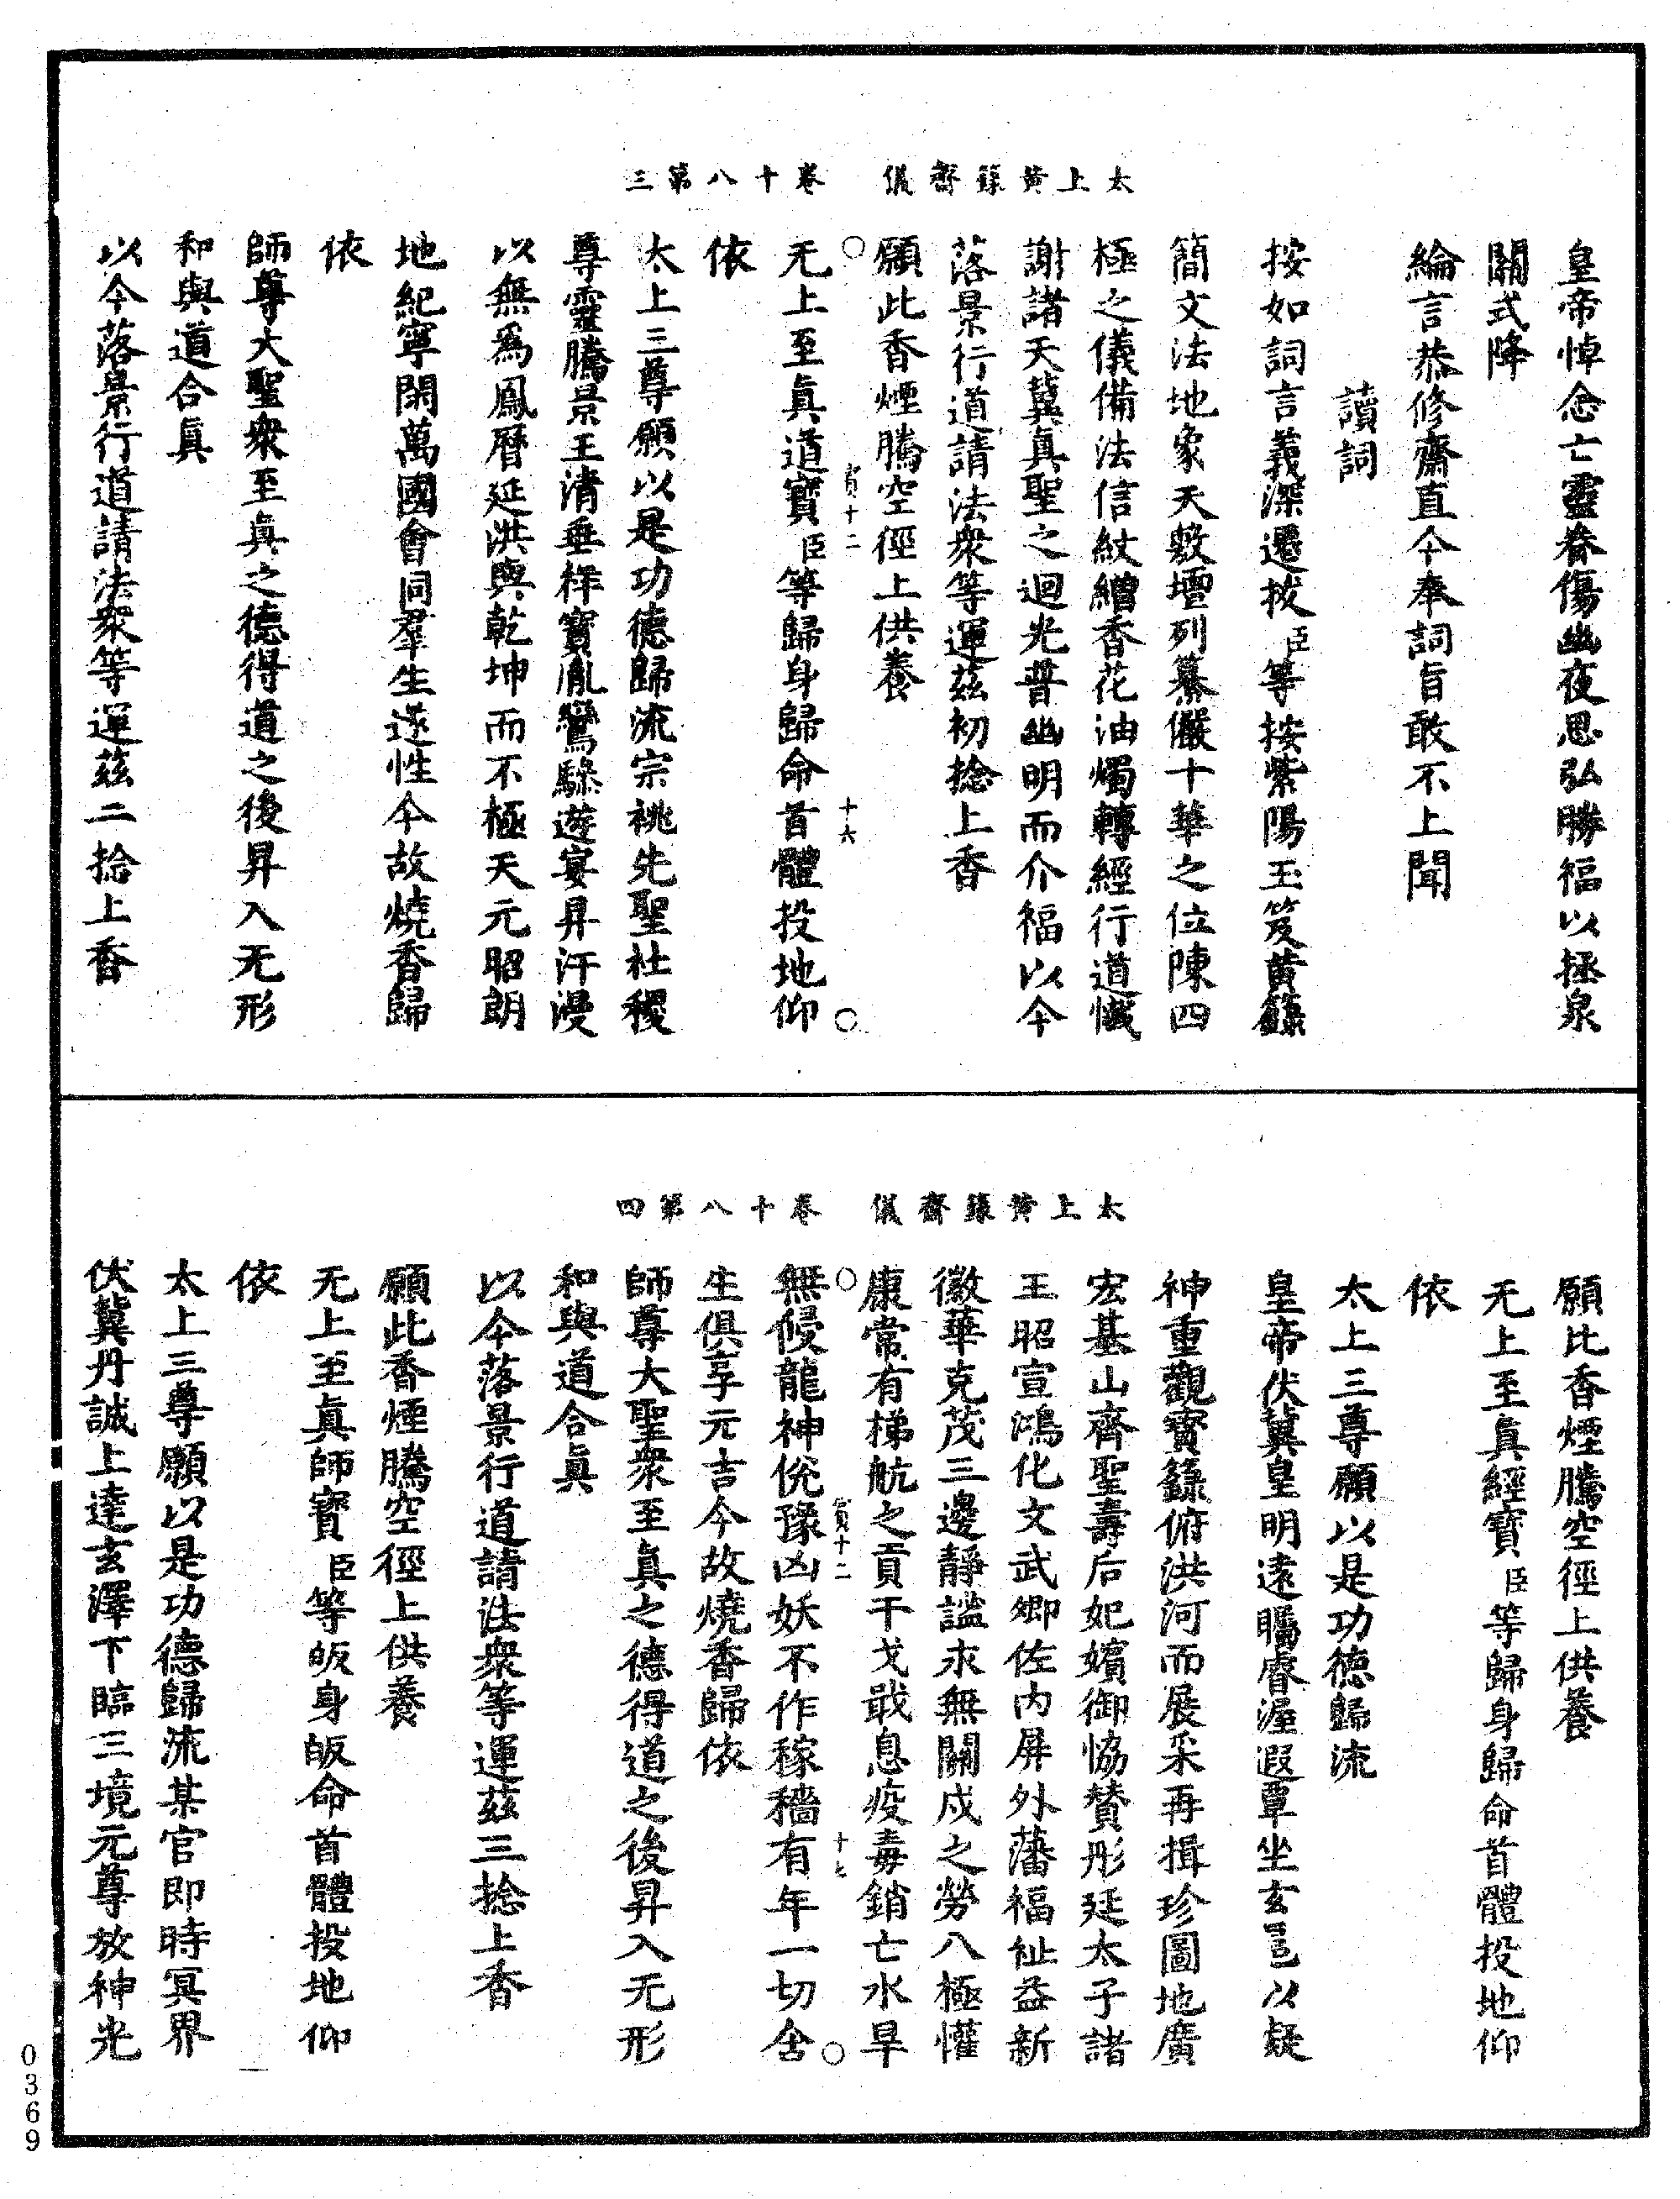 太上黃籙齋儀　卷十八第三
皇帝悼念亡靈眷傷幽夜思弘勝福以拯泉
關式降
綸言恭修齋直今奉詞旨敢不上聞
讀詞
按如詞言義深遷拔臣等按紫陽玉笈黄籙
簡文法地象天敷壇列纂儼十華之位陳四
極之儀備法信紋繒香花油燭轉經行道懺
謝諸天冀真聖之迴光普幽明而介福以今
落景行道請法衆等運茲初捻上香
願此香煙騰空徑上供養
十二
十六
无上至真道寳臣等歸身歸命首體投地仰
依
太上三尊願以是功德歸流宗祧先聖社稷
尊靈騰景王清垂祥寳胤鸞驂遊宴昇汗漫
以無爲鳳曆延洪與乾坤而不極天元昭朗
地紀寧閑萬國會同羣生遂性今故燒香歸
依
師尊大聖衆至真之德得道之後昇入无形
和與道合真
以今落景行道請法衆等運茲二捻上香
太上黃籙齋儀　卷十八第四
願比香煙騰空徑上供養
无上至真經寳臣等歸身歸命首體投地仰
依
太上三尊願以是功德歸流
皇帝伏冀皇明遠矚睿渥遐覃坐玄扈以疑
神重觀寳籙俯洪河而展采再揖珍圖地廣
宏基山齊聖壽后妃嬪御恊賛彤廷太子諸
王昭宣鴻化文武卿佐内屏外藩福祉益新
徽華克茂三邊靜謐求無關戍之勞八極懽
康常有梯航之貢干戈戢息疫毒銷亡水旱
十二
十七
無侵龍神侻豫凶妖不作稼穡有年一切含
生俱享元吉今故燒香歸依
師尊大聖衆至真之德得道之後昇入无形
和與道合真
以今落景行道請法衆等運茲三捻上香
願此香煙騰空徑上供養
无上至真師寳臣等皈身皈命首體投地仰
依
太上三尊願以是功德歸流某官即時冥界
伏冀丹誠上達玄澤下臨三境元尊放神光
0369